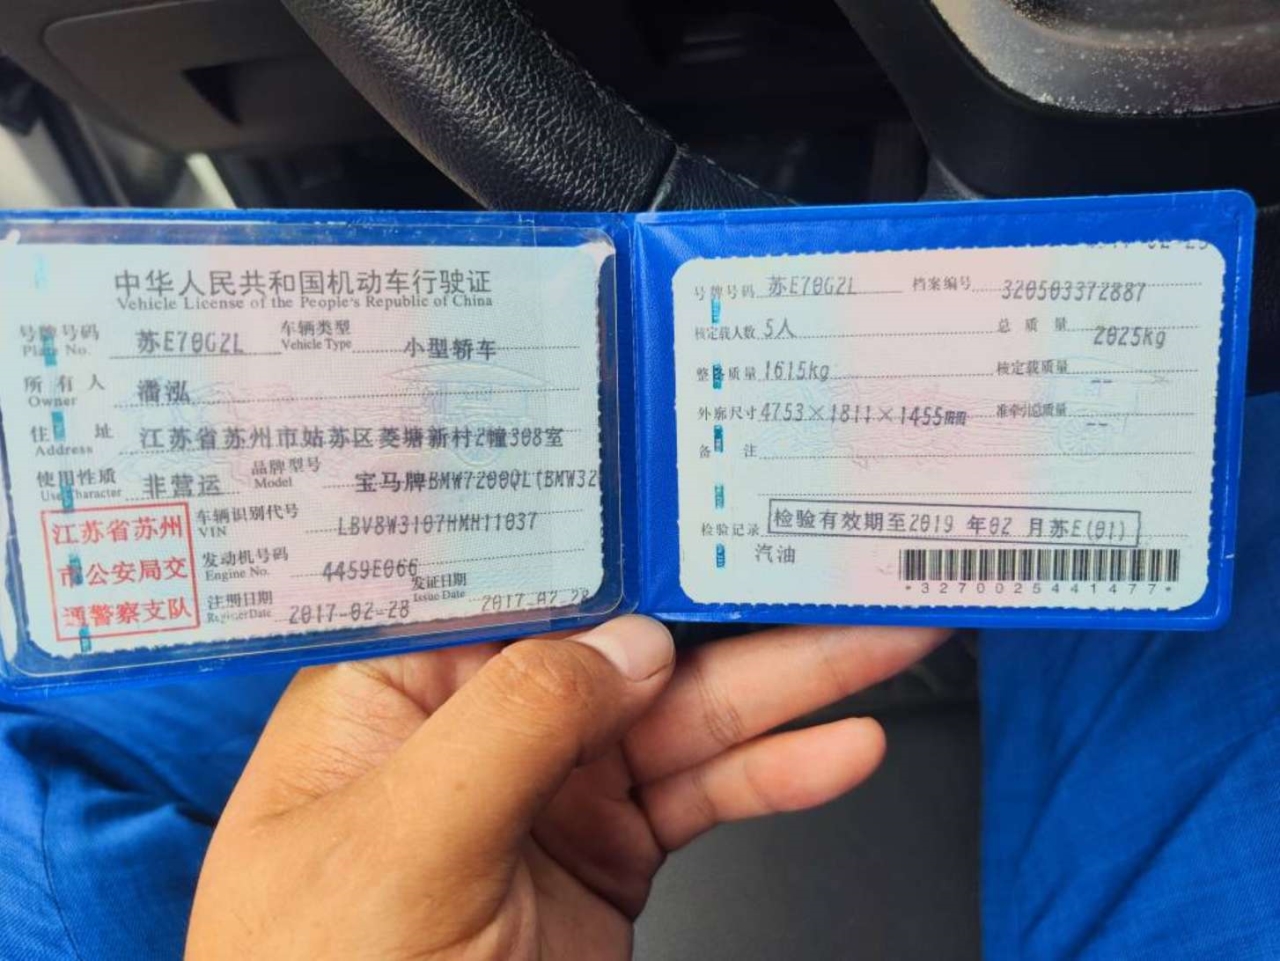 中华人民共和国机动车行驶证
Vehicle License of the People's Republic of China
号牌号码 苏E70G2L 车辆类型 小型轿车
Plate No. Vehicle Type
所有人 潘泓
Owner
住址 江苏省苏州市姑苏区菱塘新村2幢308室
Address
使用性质 非营运 品牌型号 宝马牌BMW7200QL(BMW32
Use Character Model
江苏省苏州
市公安局交
通警察支队
车辆识别代号 LBV8W3107HMH11037
VIN
发动机号码 4459E066
Engine No.
注册日期 2017-02-28 发证日期 2017-02-28
Register Date Issue Date
号牌号码 苏E70G2L 档案编号 320503372887
核定载人数 5人 总质量 2025kg
整备质量 1615kg 核定载质量 --
外廓尺寸 4753×1811×1455mm 准牵引总质量 --
备注
检验记录 检验有效期至2019年02月苏E(01)
汽油
*3270025441477*